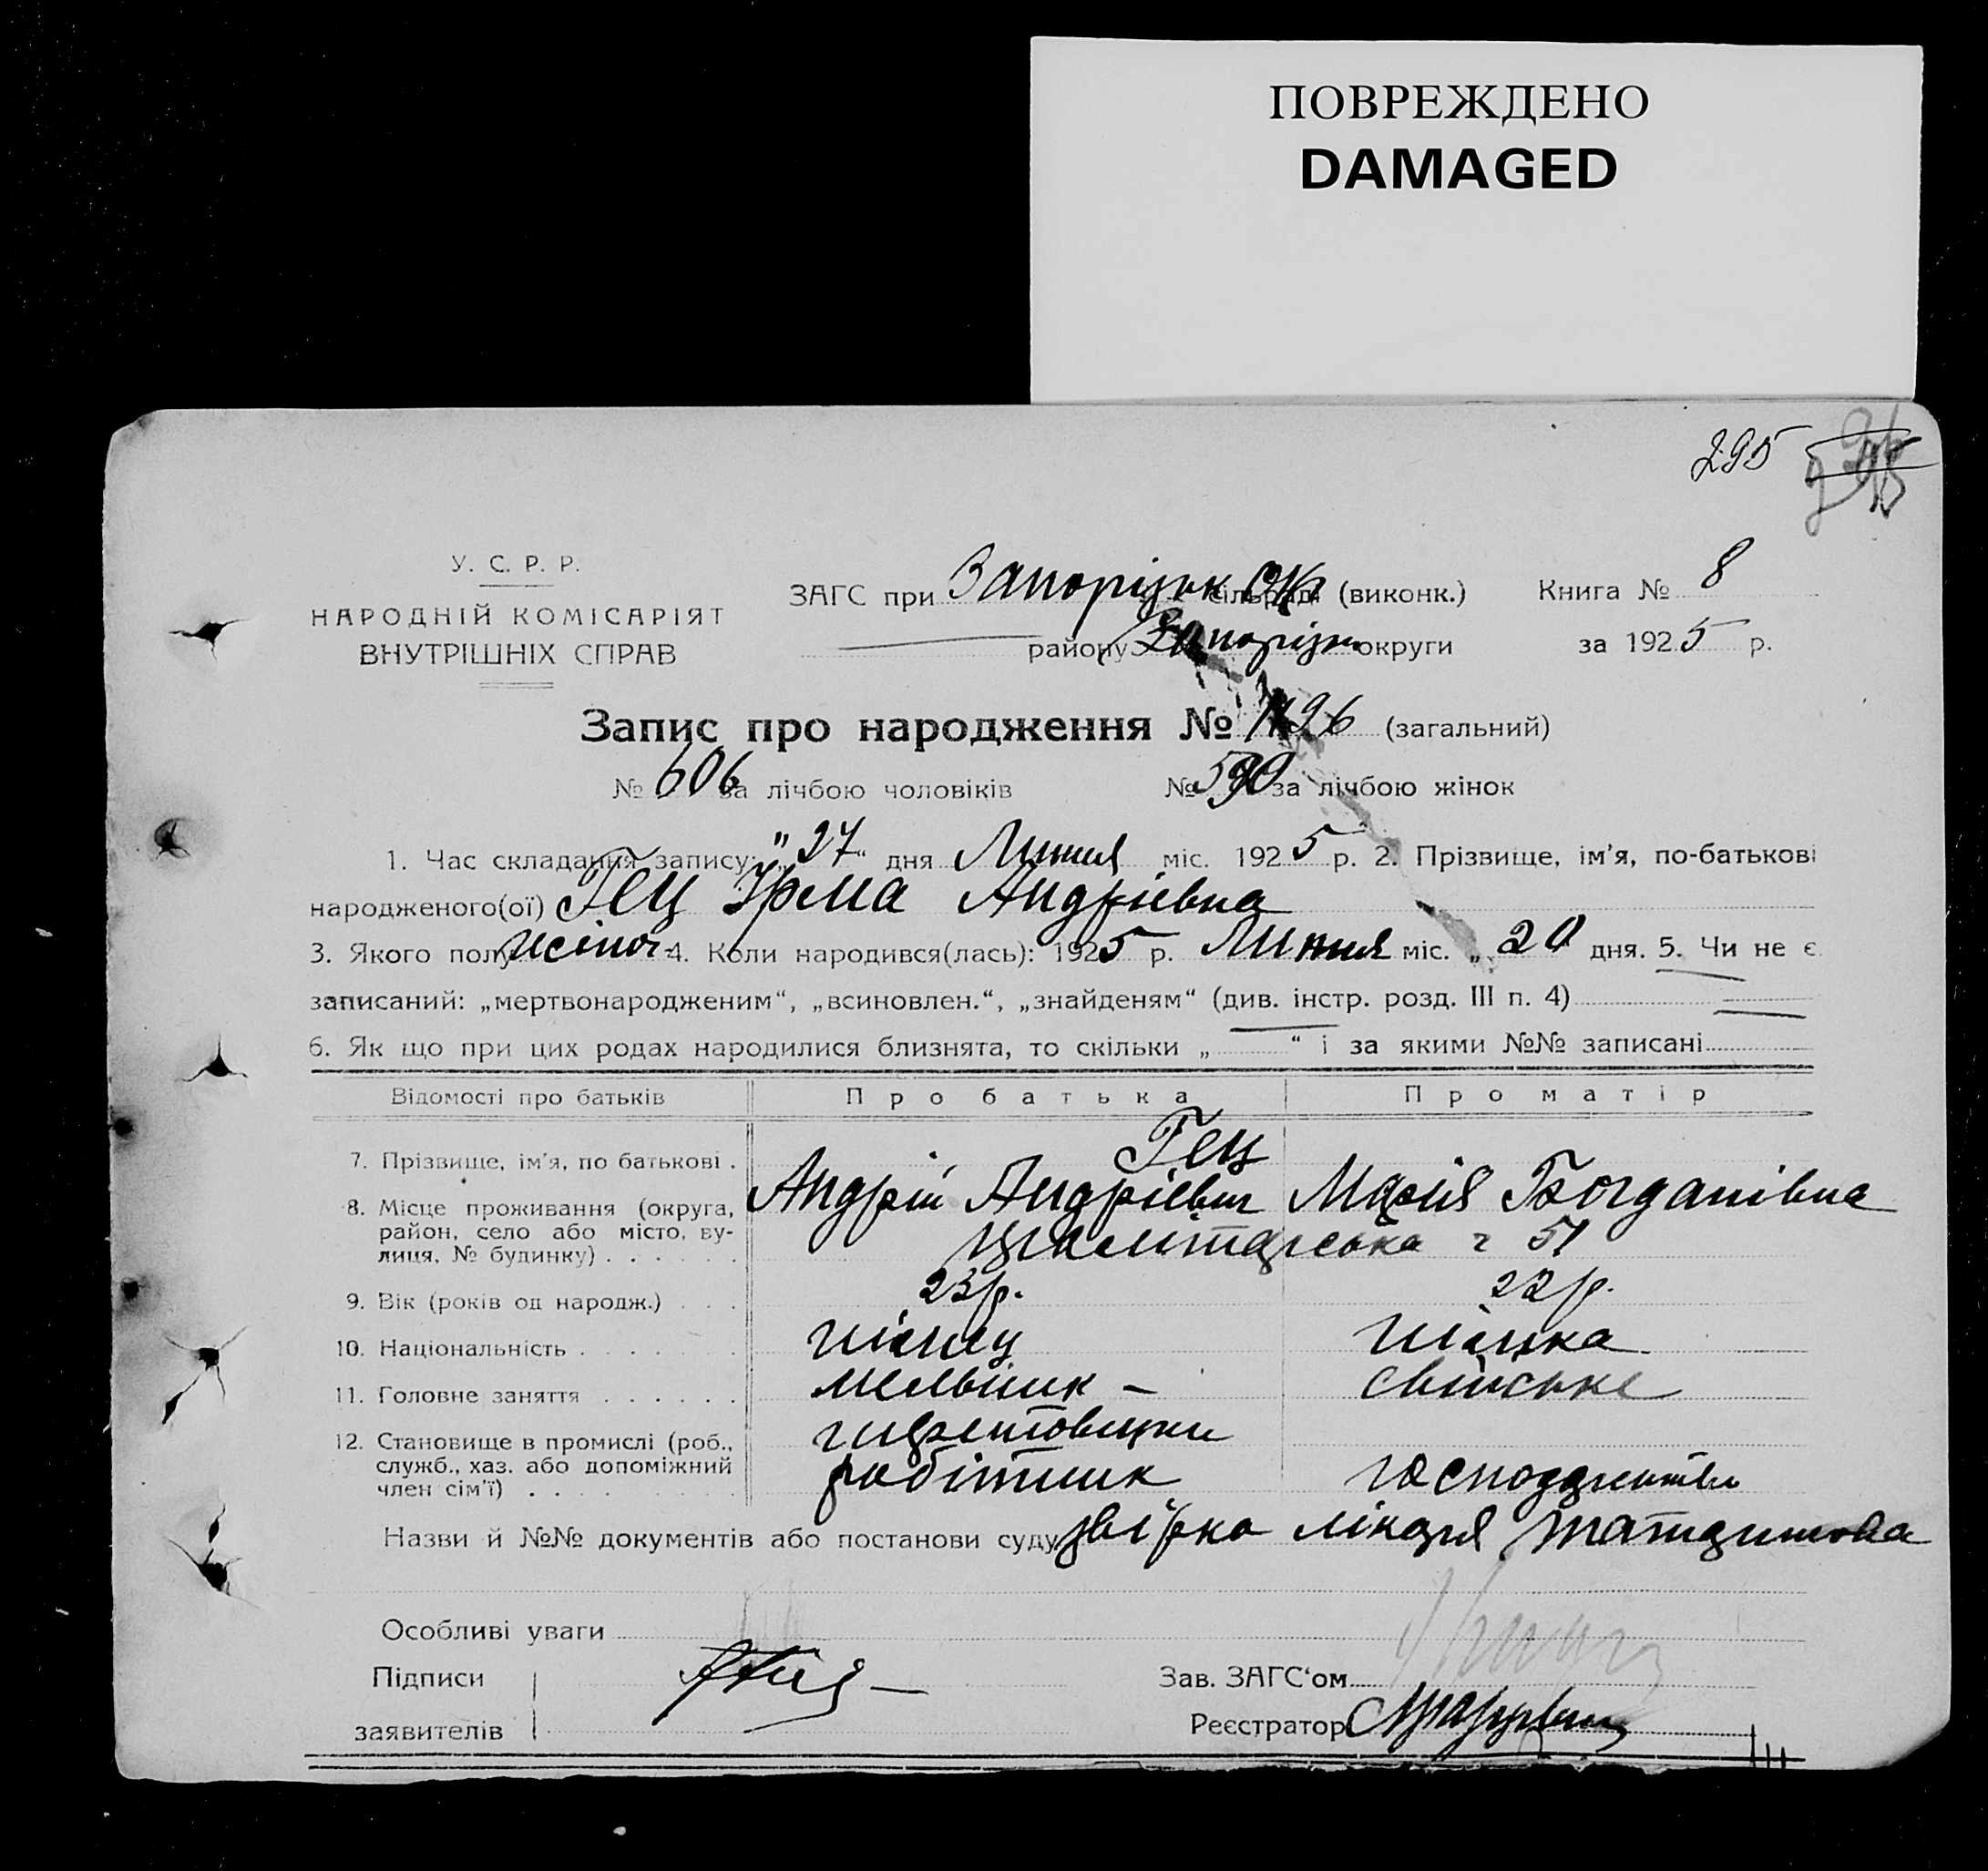 ПОВРЕЖДЕНО
DAMAGED
295
У. С. Р. Р.
НАРОДНІЙ КОМІСАРІЯТ
ВНУТРІШНІХ СПРАВ
ЗАГС при Запорізьк Окр сільраді (виконк.) Книга № 8
району Запорізьк округи за 1925 р.
Запис про народження № 1196 (загальний)
№ 606 за лічбою чоловіків № 590 за лічбою жінок
1. Час складання запису: „27“ дня Липня міс. 1925 р. 2. Прізвище, ім'я, по-батькові
народженого(ої) Гец Ірма Андріївна
3. Якого полу жіноч. 4. Коли народився(лась): 1925 р. Липня міс. „20 дня. 5. Чи не є
записаний: „мертвонародженим“, „всиновлен.“, „знайденям“ (див. інстр. розд. III п. 4)
6. Як що при цих родах народилися близнята, то скільки „ “ і за якими №№ записані
Відомості про батьків Про батька Про матір
7. Прізвище, ім'я, по батькові . Гец
Андрій Андрієвич Марія Богданівна
8. Місце проживання (округа, район, село або місто, вулиця, № будинку) . . . . . . ч 51
9. Вік (років од народж.) . . . 23р. 22р.
10. Національність . . . . . . . німець німка
11. Головне заняття . . . . . . мельник – свійське
12. Становище в промислі (роб., служб., хаз. або допоміжний член сім'ї) . . . . . . . . . робітник господарство
Назви й №№ документів або постанови суду
Особливі уваги
Підписи
заявителів
Зав. ЗАГС'ом
Реєстратор